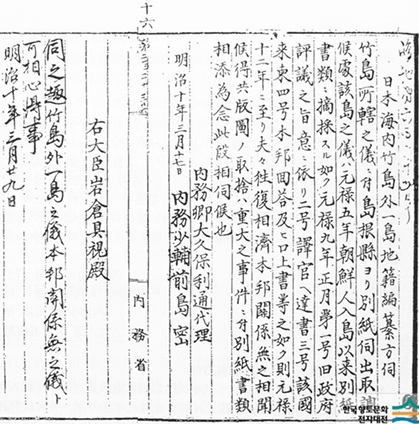 日本海内竹島外一島地籍編纂方伺
竹島所轄之儀ニ付島根縣ヨリ別紙伺出取調
候處該島之儀ハ元禄五年朝鮮人入島以来別紙
書類ニ摘採スル如ク元禄九年正月第一号旧政府
評議之旨意ニ依リ二号譯官ヘ達書三号該國
来柬四号本邦回答及ヒ口上書等之如ク則元禄
十二年ニ至リ夫々往復相濟本邦關係無之相聞
候得共版圖ノ取捨ハ重大之事件ニ付別紙書類
相添為念此段相伺候也
内務卿大久保利通代理
明治十年三月十七日　内務少輔前島密
内務省
十六
右大臣岩倉具視殿
伺之趣竹島外一島之儀本邦関係無之儀ト
可相心得事
明治十年三月廿九日
한국향토문화
전자대전